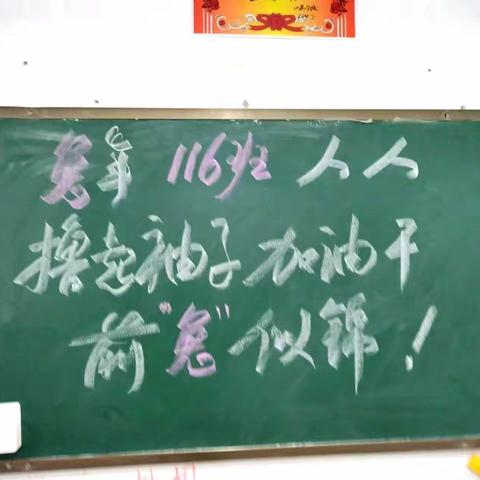 兔年 116班 人人
撸起袖子加油干
前"兔"似锦！